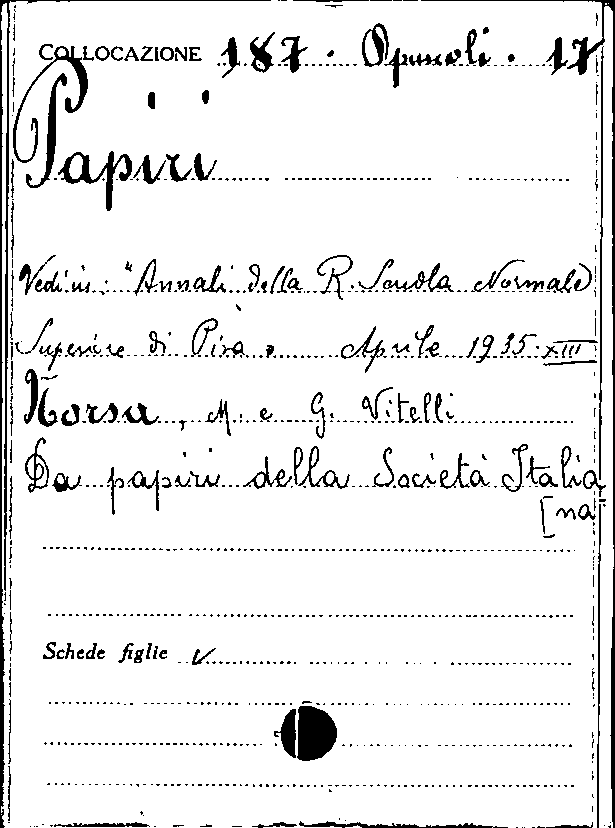 COLLOCAZIONE 187 . Opuscoli . 17
Papiri
Vedi in: "Annali della R. Scuola Normale
Superiore di Pisa" Aprile 1935-XIII
Norsa, M. e G. Vitelli
Da papiri della Società Italia
[na
Schede figlie ✓